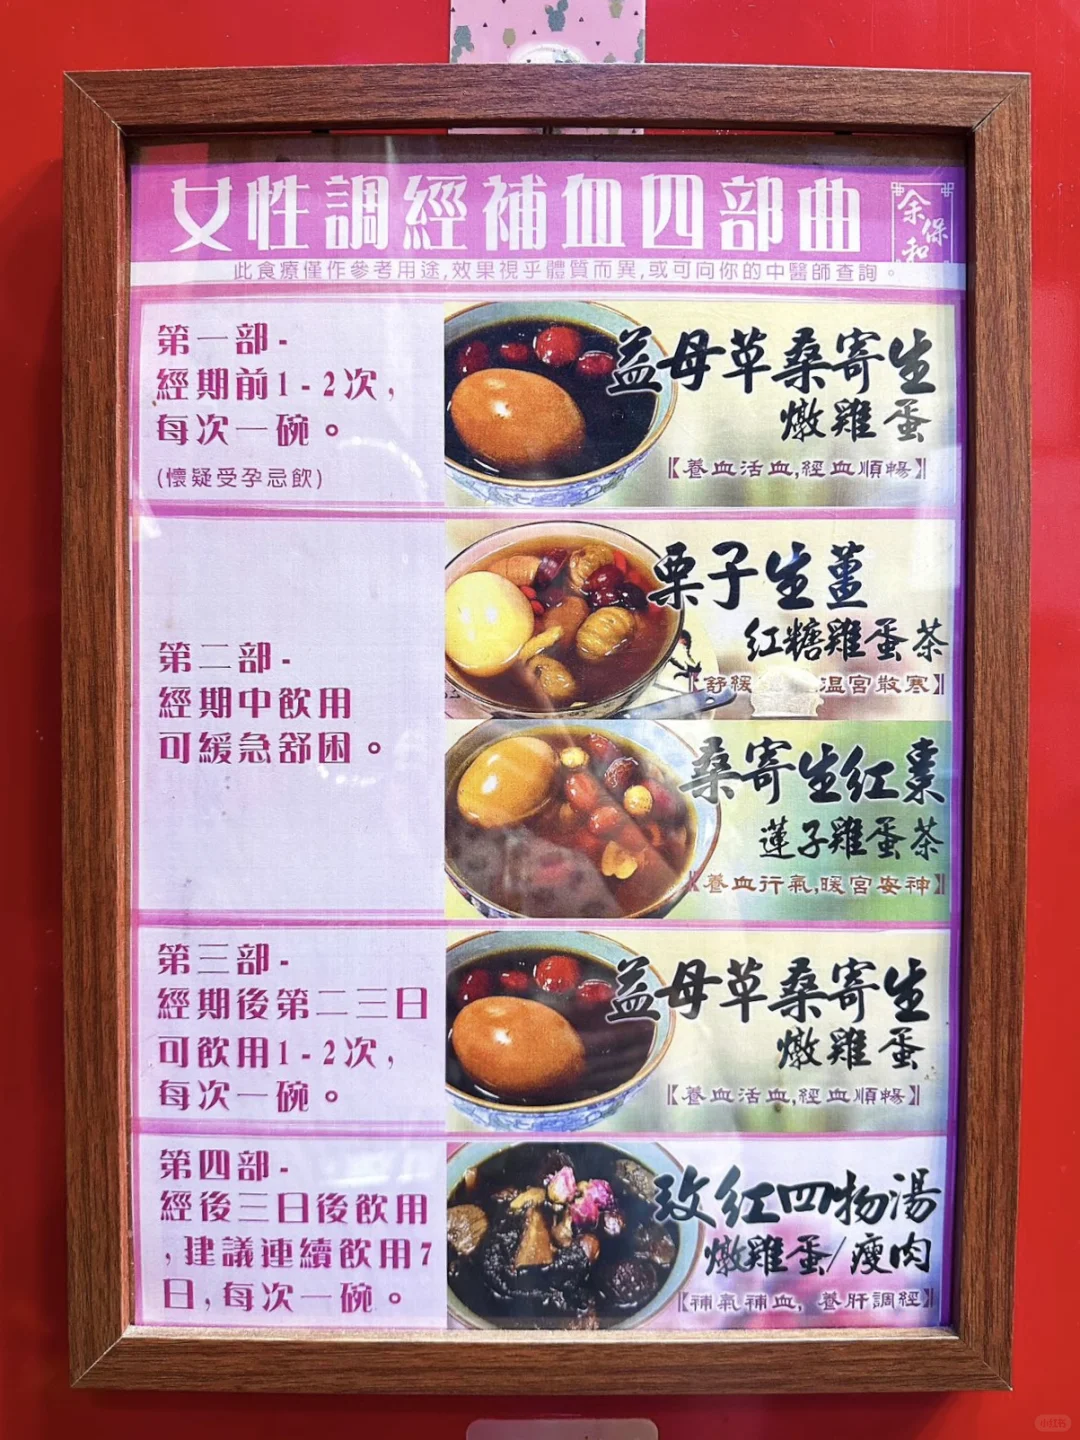 女性調經補血四部曲
余保和
此食療僅作參考用途,效果視乎體質而異,或可向你的中醫師查詢。
第一部-
經期前1-2次,
每次一碗。
(懷疑受孕忌飲)
益母草桑寄生
燉雞蛋
【養血活血,經血順暢】
第二部-
經期中飲用
可緩急舒困。
栗子生薑
紅糖雞蛋茶
【舒緩 溫宮散寒】
桑寄生紅棗
蓮子雞蛋茶
【養血行氣,暖宮安神】
第三部-
經期後第二三日
可飲用1-2次,
每次一碗。
益母草桑寄生
燉雞蛋
【養血活血,經血順暢】
第四部-
經後三日後飲用
,建議連續飲用7
日,每次一碗。
玫紅四物湯
燉雞蛋/瘦肉
【補氣補血, 養肝調經】
小红书